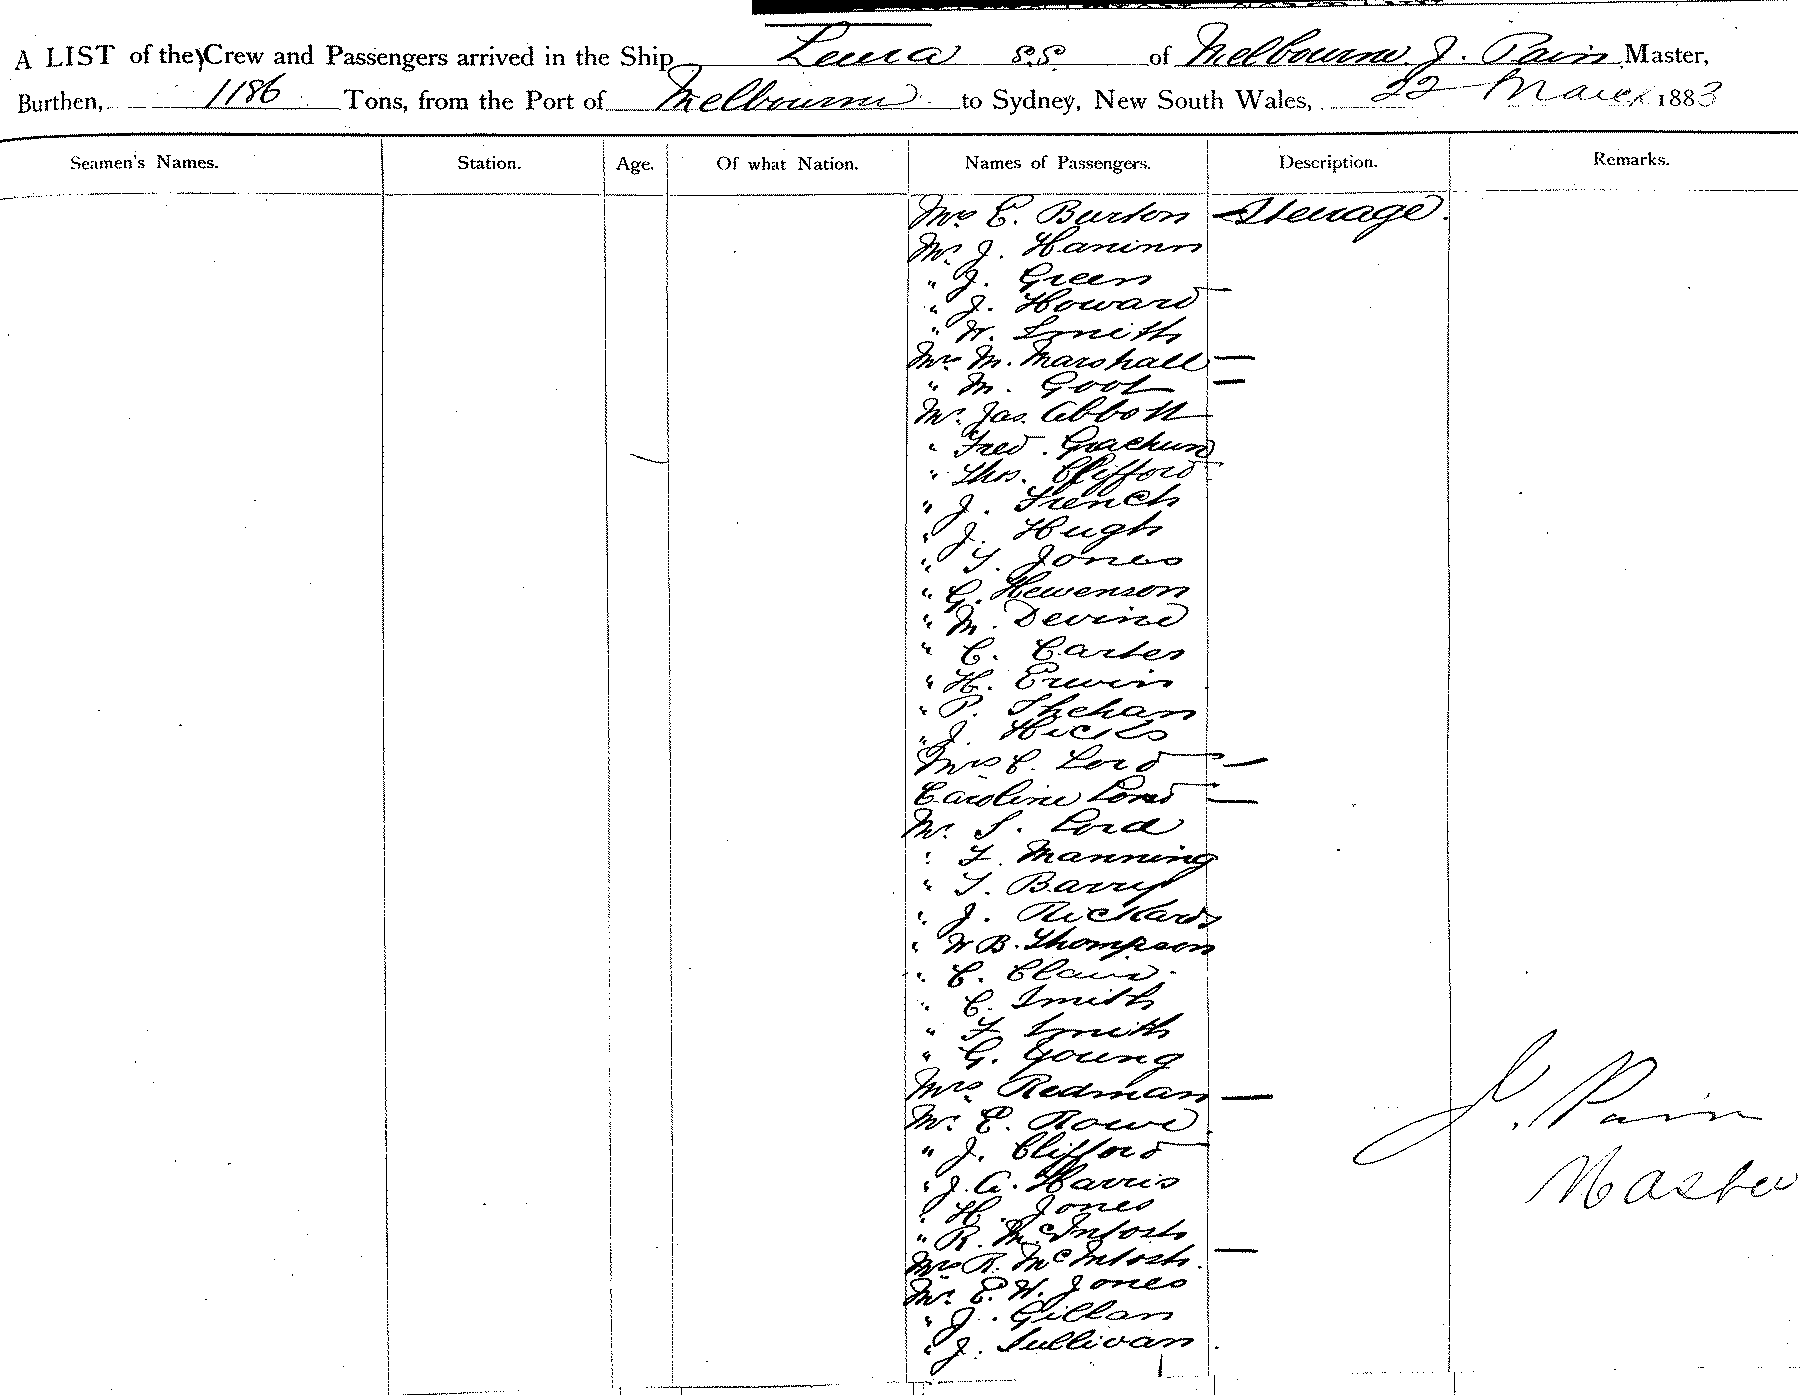 A LIST of the Crew and Passengers arrived in the Ship Leura s.s. of Melbourne J. Pain Master,
Burthen, 1186 Tons, from the Port of Melbourne to Sydney, New South Wales, 22 March 1883
Seamen's Names. Station. Age. Of what Nation. Names of Passengers. Description. Remarks.
Mrs E. Burton Steerage.
Mr. J. Haninn
" J. Green
" J. Howard
" W. Smith
Mrs M. Marshall —
" M. Goot —
Mr. Jas. Abbott
" Fred.
" Thos. Clifford
" J. French
" J. Hugh
" T. Jones
" G. Hewenson
" M. Devine
" C. Carter
" H. Erwin
" P. Shehan
" J. Hicks
Mrs C. Lord —
Caroline Lord —
Mr. S. Lord
" F. Manning
" T. Barry
" J. Rickards
" W B. Thompson
" C. Clair
" C. Smith
" F. Smith
" G. Young
Mrs Redman —
Mr. E. Rowe
" J. Clifford
" J. A. Harris
" H. Jones
" R. McIntosh
Mrs R. McIntosh. —
Mr. E. W. Jones
" J. Gillan
" J. Sullivan.
J. Pain
Master